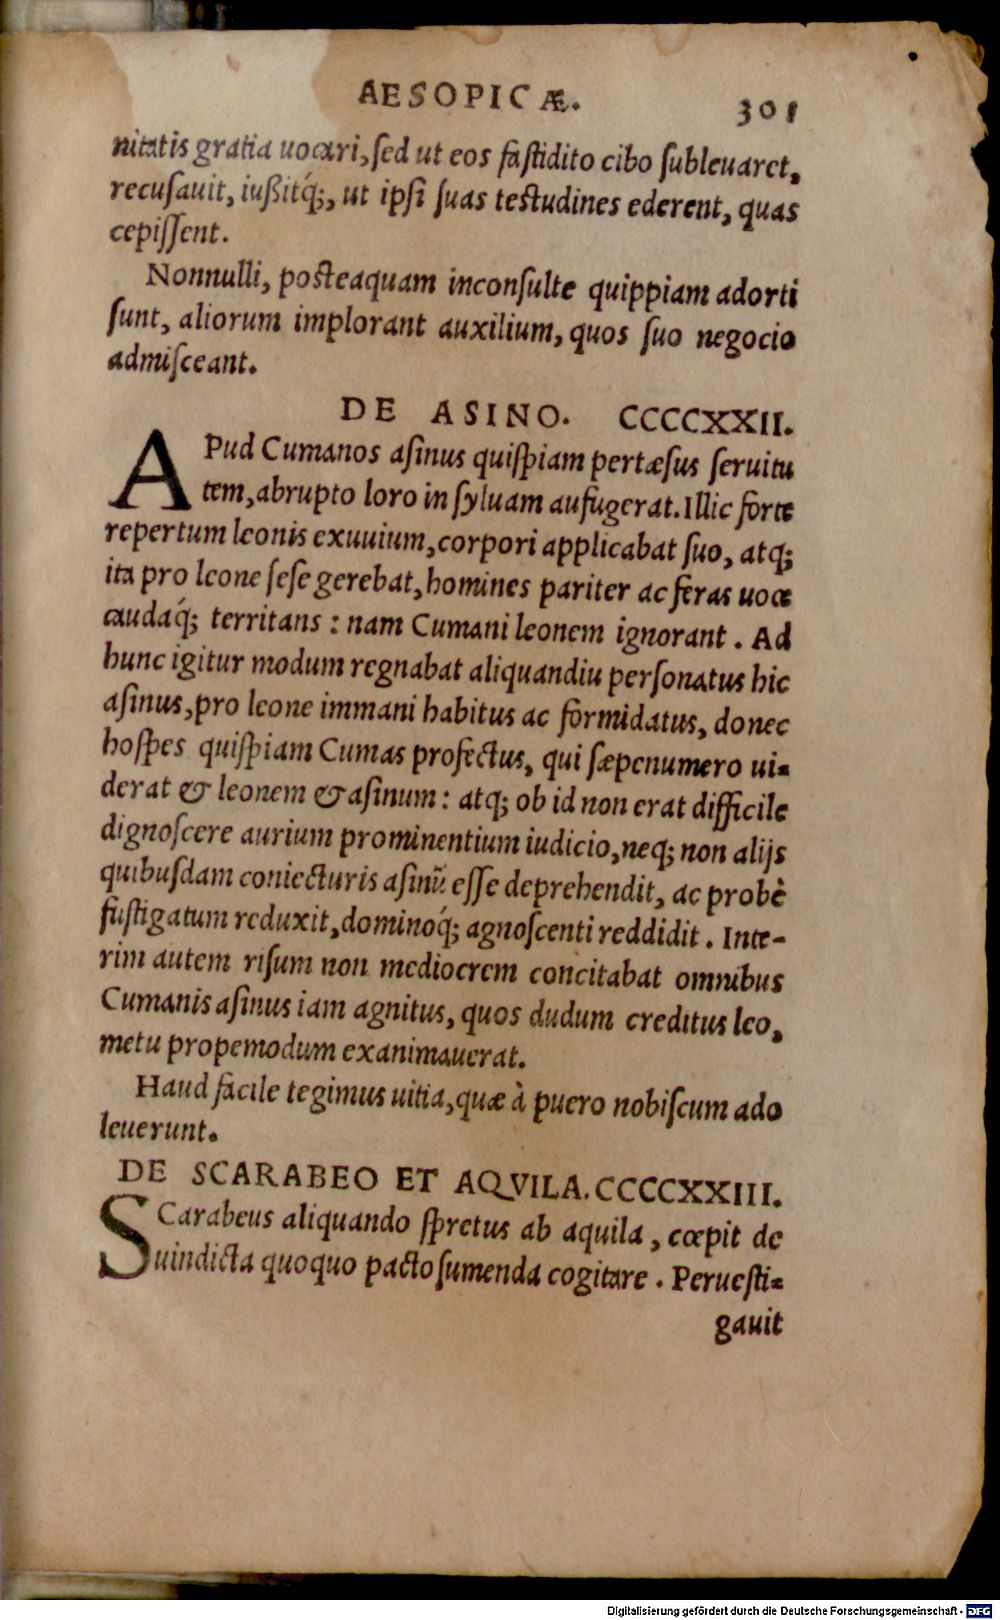 AESOPICÆ. 301
nitatis gratia uocari, sed ut eos fastidito cibo subleuaret,
recusauit, iußitq́;, ut ipsi suas testudines ederent, quas
cepissent.
Nonnulli, posteaquam inconsulte quippiam adorti
sunt, aliorum implorant auxilium, quos suo negocio
admisceant.
DE ASINO. CCCCXXII.
APud Cumanos asinus quispiam pertæsus seruitu
tem, abrupto loro in syluam aufugerat. Illic forte
repertum leonis exuuium, corpori applicabat suo, atq;
ita pro leone sese gerebat, homines pariter ac feras uoce
caudaq́; territans: nam Cumani leonem ignorant. Ad
hunc igitur modum regnabat aliquandiu personatus hic
asinus, pro leone immani habitus ac formidatus, donec
hospes quispiam Cumas profectus, qui sæpenumero ui=
derat & leonem & asinum: atq; ob id non erat difficile
dignoscere aurium prominentium iudicio, neq; non alijs
quibusdam coniecturis asinũ esse deprehendit, ac probè
fustigatum reduxit, dominoq́; agnoscenti reddidit. Inte-
rim autem risum non mediocrem concitabat omnibus
Cumanis asinus iam agnitus, quos dudum creditus leo,
metu propemodum exanimauerat.
Haud facile tegimus uitia, quæ à puero nobiscum ado
leuerunt.
DE SCARABEO ET AQVILA. CCCCXXIII.
SCarabeus aliquando spretus ab aquila, cœpit de
uindicta quoquo pacto sumenda cogitare. Peruesti=
gauit
Digitalisierung gefördert durch die Deutsche Forschungsgemeinschaft - DFG